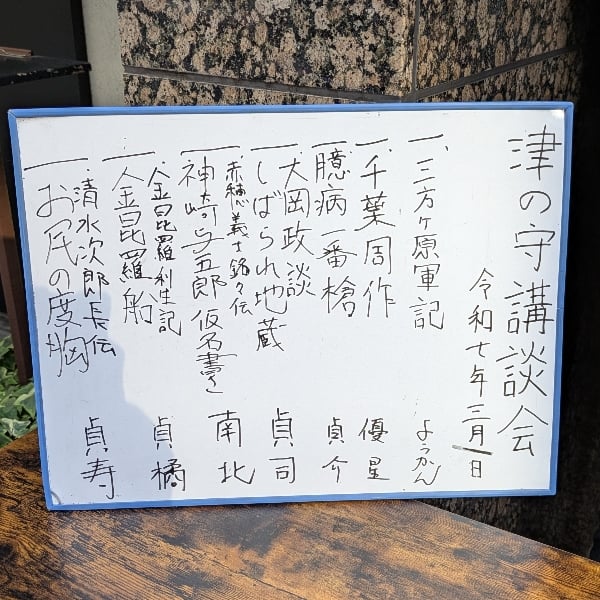 津の守講談会
令和七年三月一日
一、三方ヶ原軍記 ようかん
一、千葉周作 優星
一、臆病一番槍 貞介
大岡政談
一、しばられ地蔵 貞司
赤穂義士銘々伝
一、神崎与五郎 仮名書き 南北
金毘羅利生記
一、金毘羅船 貞橘
清水次郎長伝
一、お民の度胸 貞寿